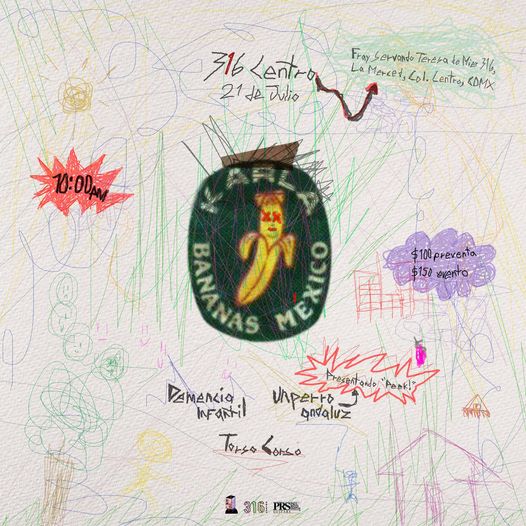 316 Centro
21 de Julio
Fray Servando Teresa de Mier 316,
La Merced, Col. Centro, CDMX
10:00AM
KARLA
BANANAS MEXICO
$100 preventa
$150 evento
Presentando "Peek!"
Demencia
Infantil
Unperro
andaluz
Torso Corso
316
PRS